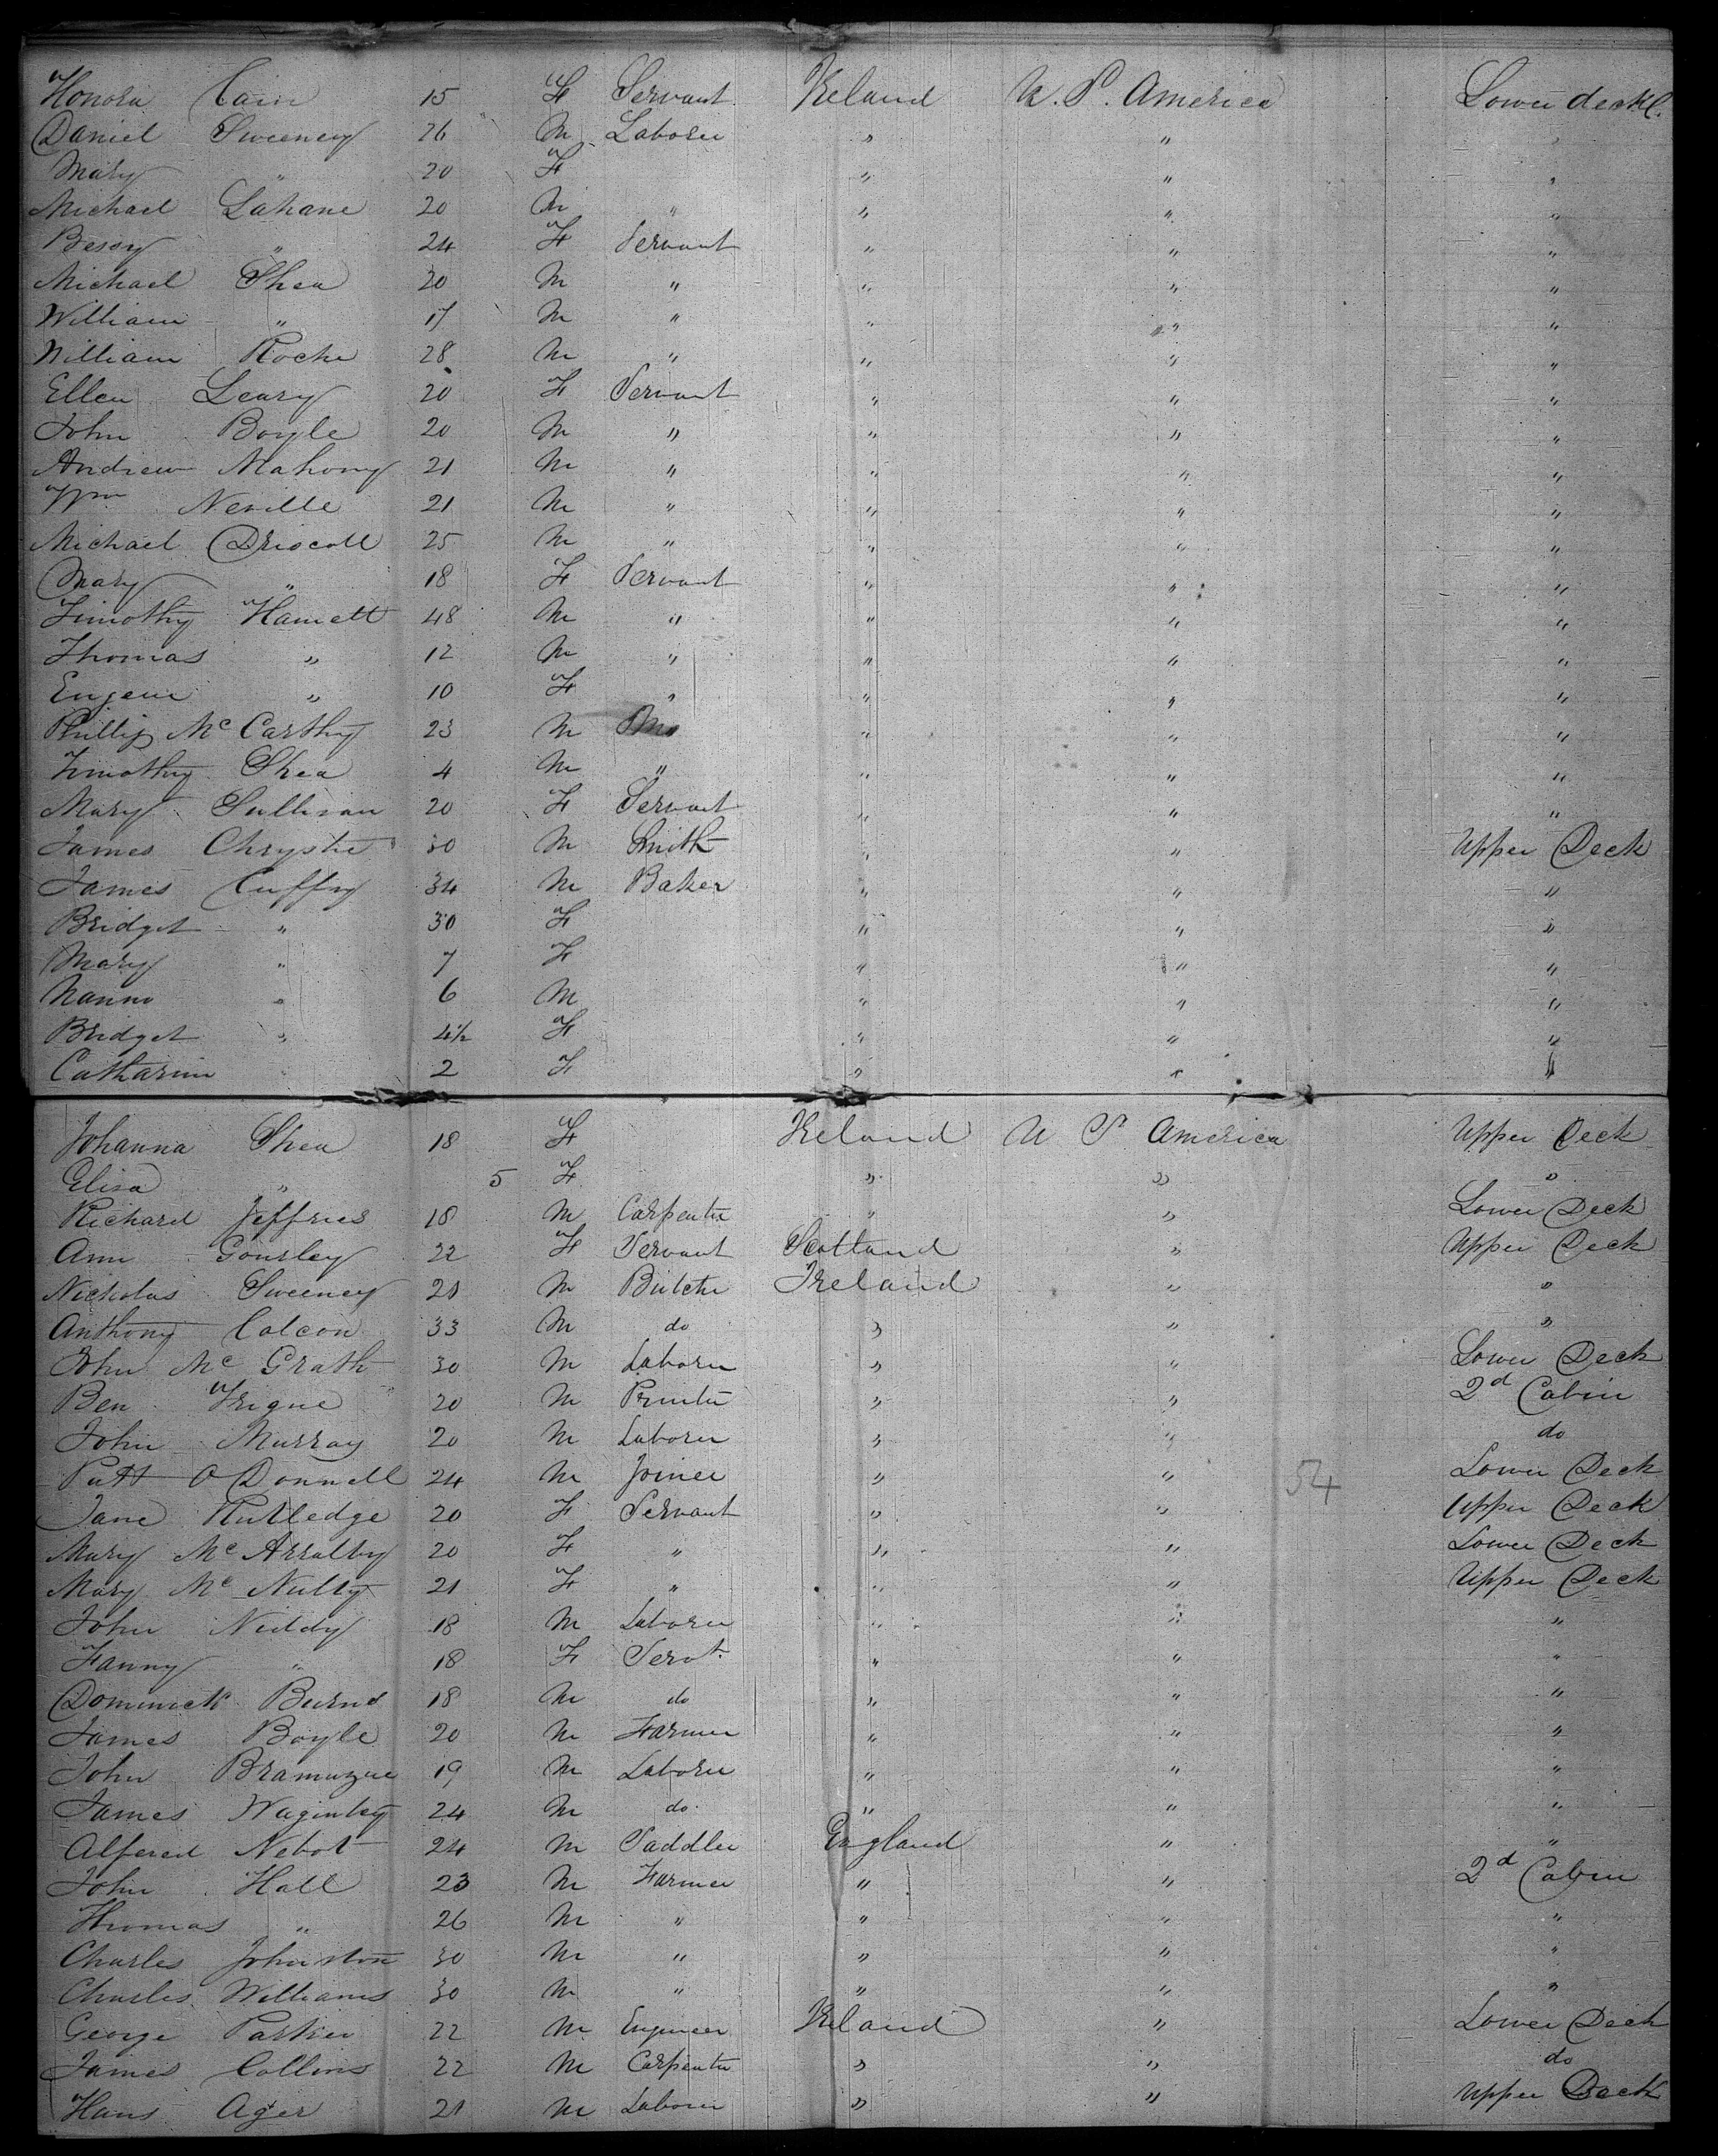 Honora Cain 15 F Servant Ireland U. S. America Lower deck
Daniel Sweeney 26 M Laborer " " "
Mary " 20 F " " "
Michael Lahane 20 M " " " "
Bessy " 24 F Servant " " "
Michael Shea 20 M " " " "
William " 17 M " " " "
William Roche 28 M " " " "
Ellen Leary 20 F Servant " " "
John Boyle 20 M " " " "
Andrew Mahony 21 M " " " "
Wm Neville 21 M " " " "
Michael Driscoll 25 M " " " "
Mary " 18 F Servant " " "
Timothy Hamett 48 M " " " "
Thomas " 12 M " " " "
Eugene " 10 F " " " "
Phillip McCarthy 23 M " " "
Timothy Shea 4 M " " " "
Mary Sullivan 20 F Servant " " "
James Chrystie 30 M Smith " " Upper Deck
James Cuffy 34 M Baker " " "
Bridget " 30 F " " "
Mary " 7 F " " "
Nanno " 6 M " " "
Bridget " 4½ F " " "
Catharine " 2 F " " "
Johanna Shea 18 F Ireland U S America Upper Deck
Elisa " 5 F " " "
Richard Jeffries 18 M Carpenter " " Lower Deck
Ann Gourley 22 F Servant Scotland " Upper Deck
Nicholas Sweeney 21 M Butcher Ireland " "
Anthony Colcon 33 M do " " "
John McGrath 30 M Laborer " " Lower Deck
Ben Frigue 20 M Printer " " 2d Cabin
John Murray 20 M Laborer " " do
Patt O Donnell 24 M Joiner " " 54 Lower Deck
Jane Rutledge 20 F Servant " " Upper Deck
Mary Mc 20 F " " " Lower Deck
Mary McNulty 21 F " " " Upper Deck
John Niddy 18 M Laborer " " "
Fanny " 18 F Servt. " " "
Dominick Burns 18 M do " " "
James Boyle 20 M Farmer " " "
John 19 M Laborer " " "
James Waginley 24 M do. " " "
Alfered Nebot 24 M Saddler England " "
John Hall 23 M Farmer " " 2d Cabin
Thomas " 26 M " " " "
Charles Johnston 30 M " " " "
Charles Williams 30 M " " " "
George Parker 22 M Engineer Ireland " Lower Deck
James Collins 22 M Carpenter " " do
Hans Ager 21 M Laborer " " Upper Deck